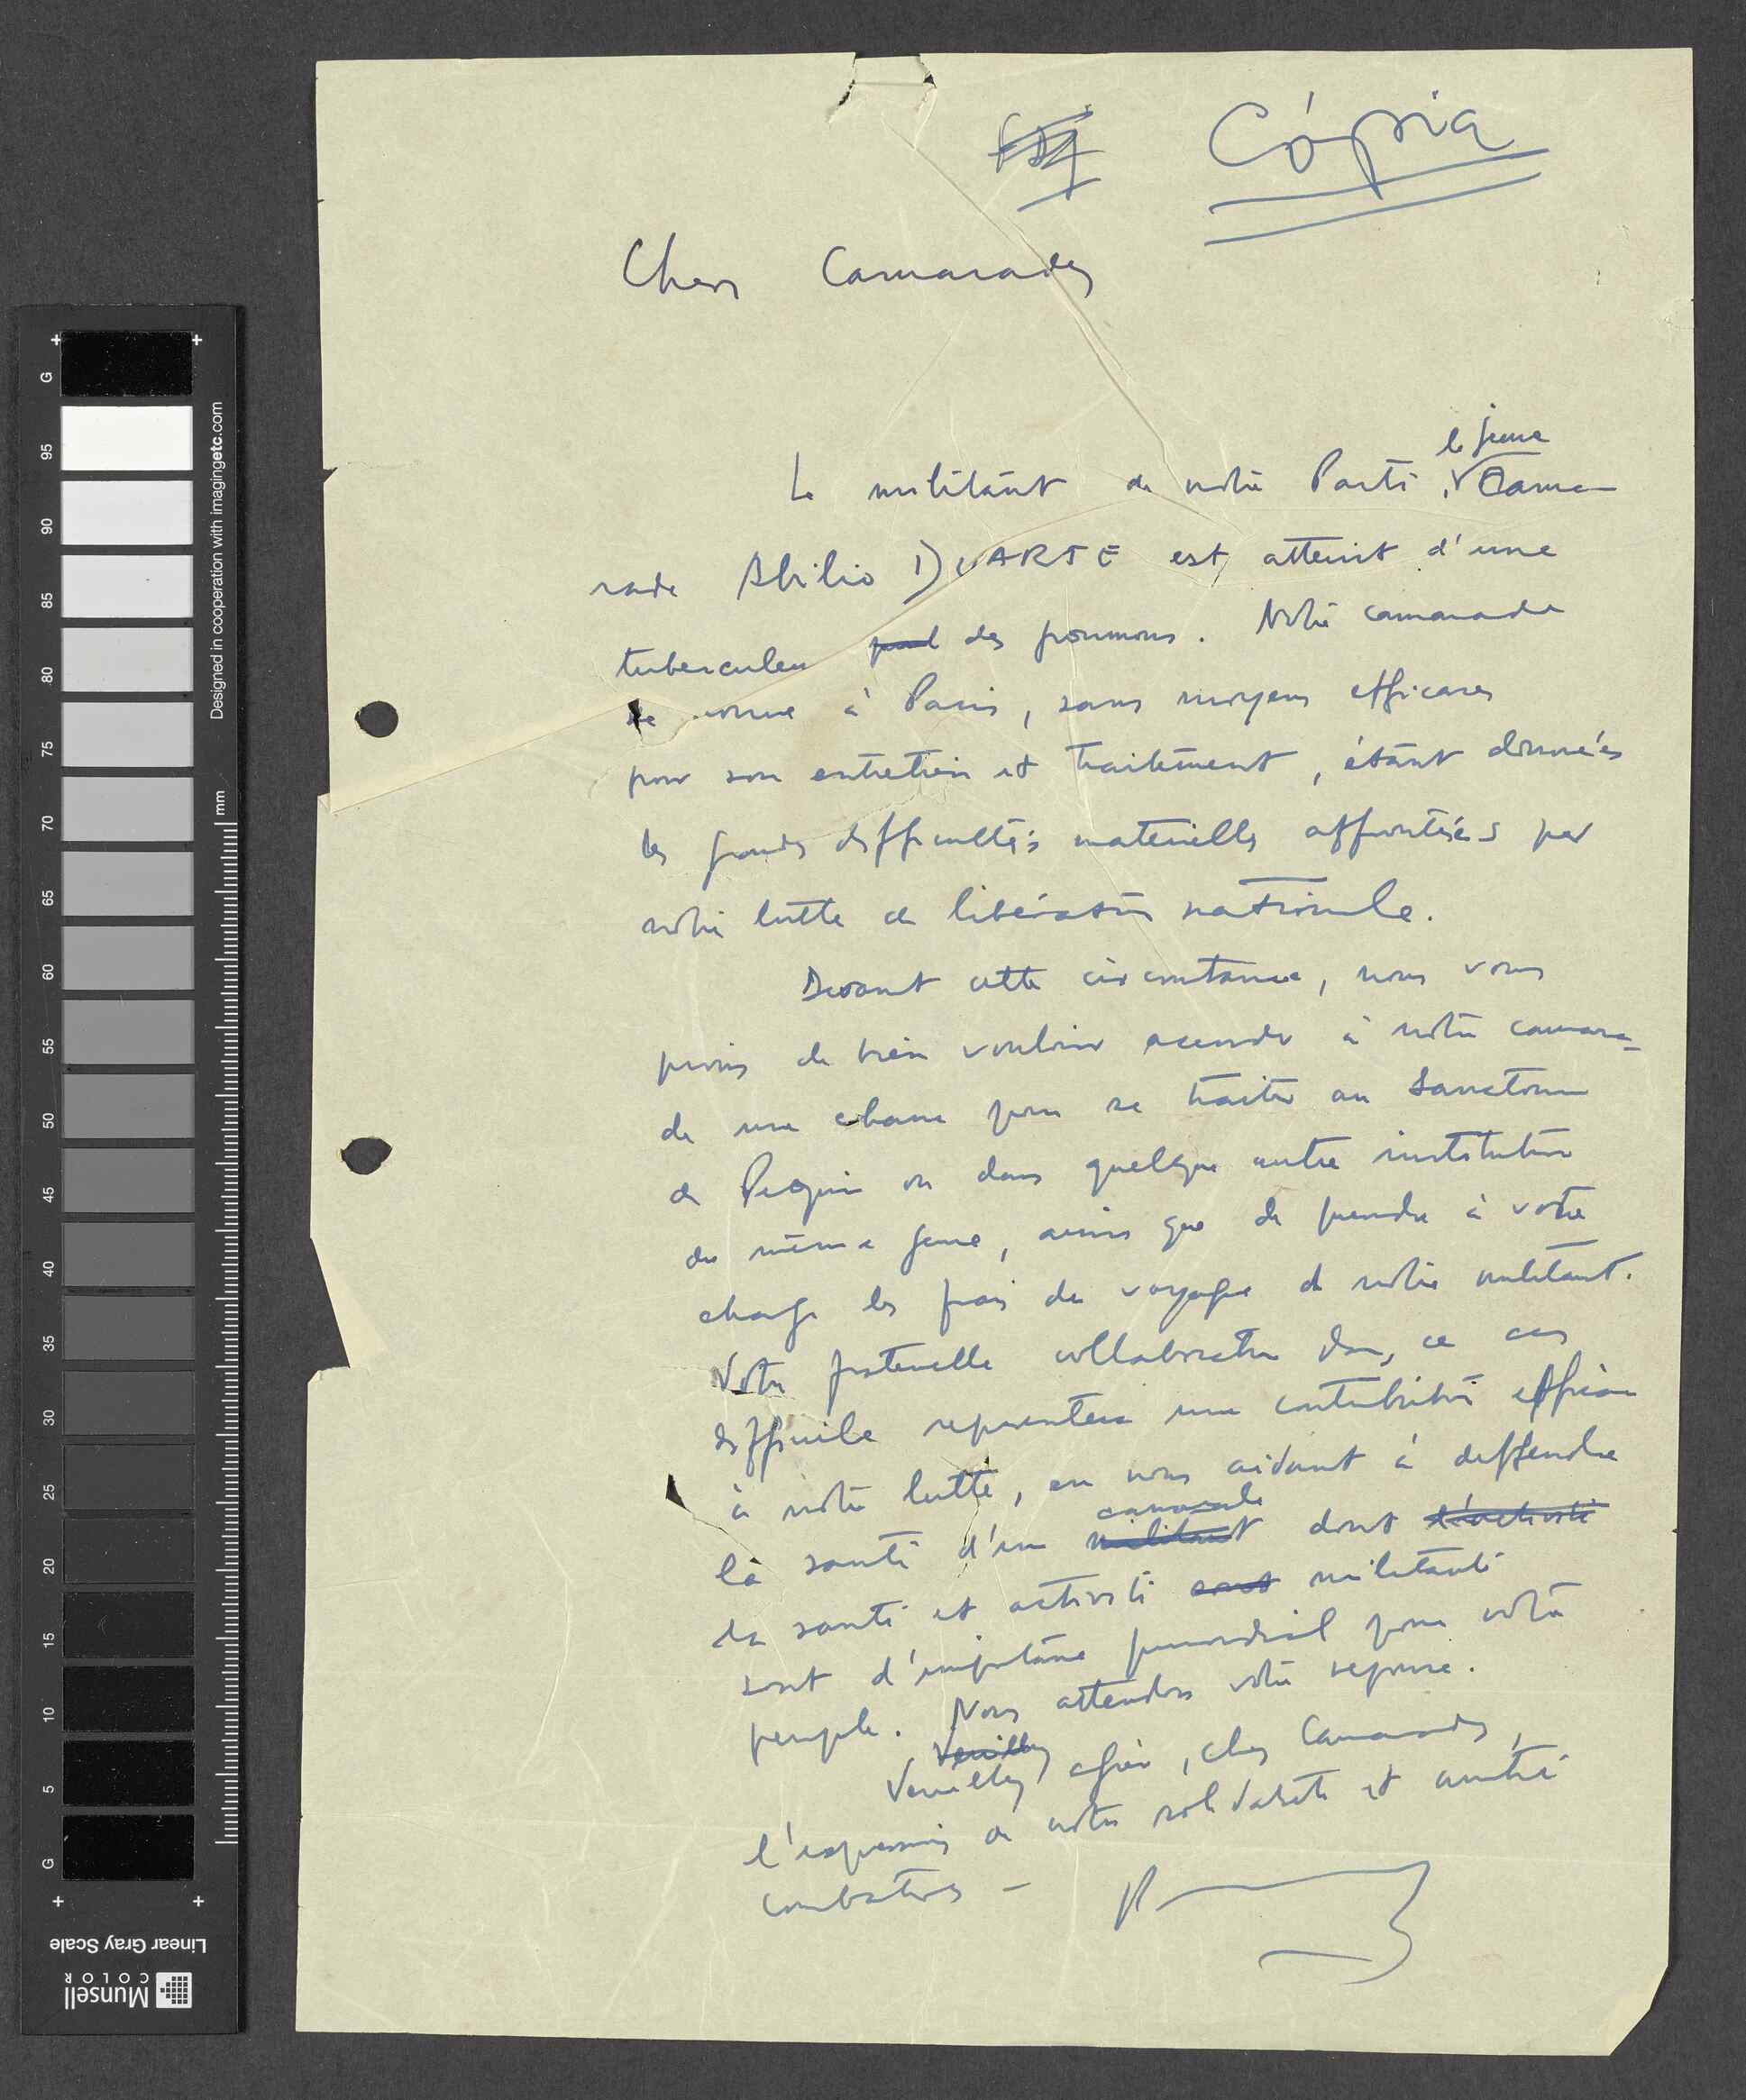 Cópia
Chers Camarades
le jeune
Le militant de notre Parti, Cama-
rade Abilio DUARTE est atteint d'une
tuberculeu des poumons. Notre camarade
se à Paris, sans moyens efficaces
pour son entretien et traitement, étant données
les grandes difficultés materielles affrontées par
notre lutte de libération nationale.
Devant cette circonstance, nous vous
prions de bien vouloir à notre camara-
de une chance pour se traiter au Sanatorium
de Pequin ou dans quelque autre institution
du même genre, ainsi que de prendre à votre
charge les frais de voyage de notre militant.
Votre fraternelle collaboration dans ce cas
difficile representera une contribution efficace
à notre lutte, en nous aidant à deffendre
camarade
la santé d'un militant dont l'activité
la santé et activité sont militante
sont d'importance primordial pour notre
peuple. Nous attendons votre reponse.
Veuillez
Veuillez agréer, chers Camarades,
l'expression de notre solidarité et amitié
combatives -
Designed in cooperation with imagingetc.com
mm
G
95
90
85
80
75
70
65
60
55
50
45
40
35
30
25
20
15
10
5
G
Linear Gray Scale
Munsell
COLOR